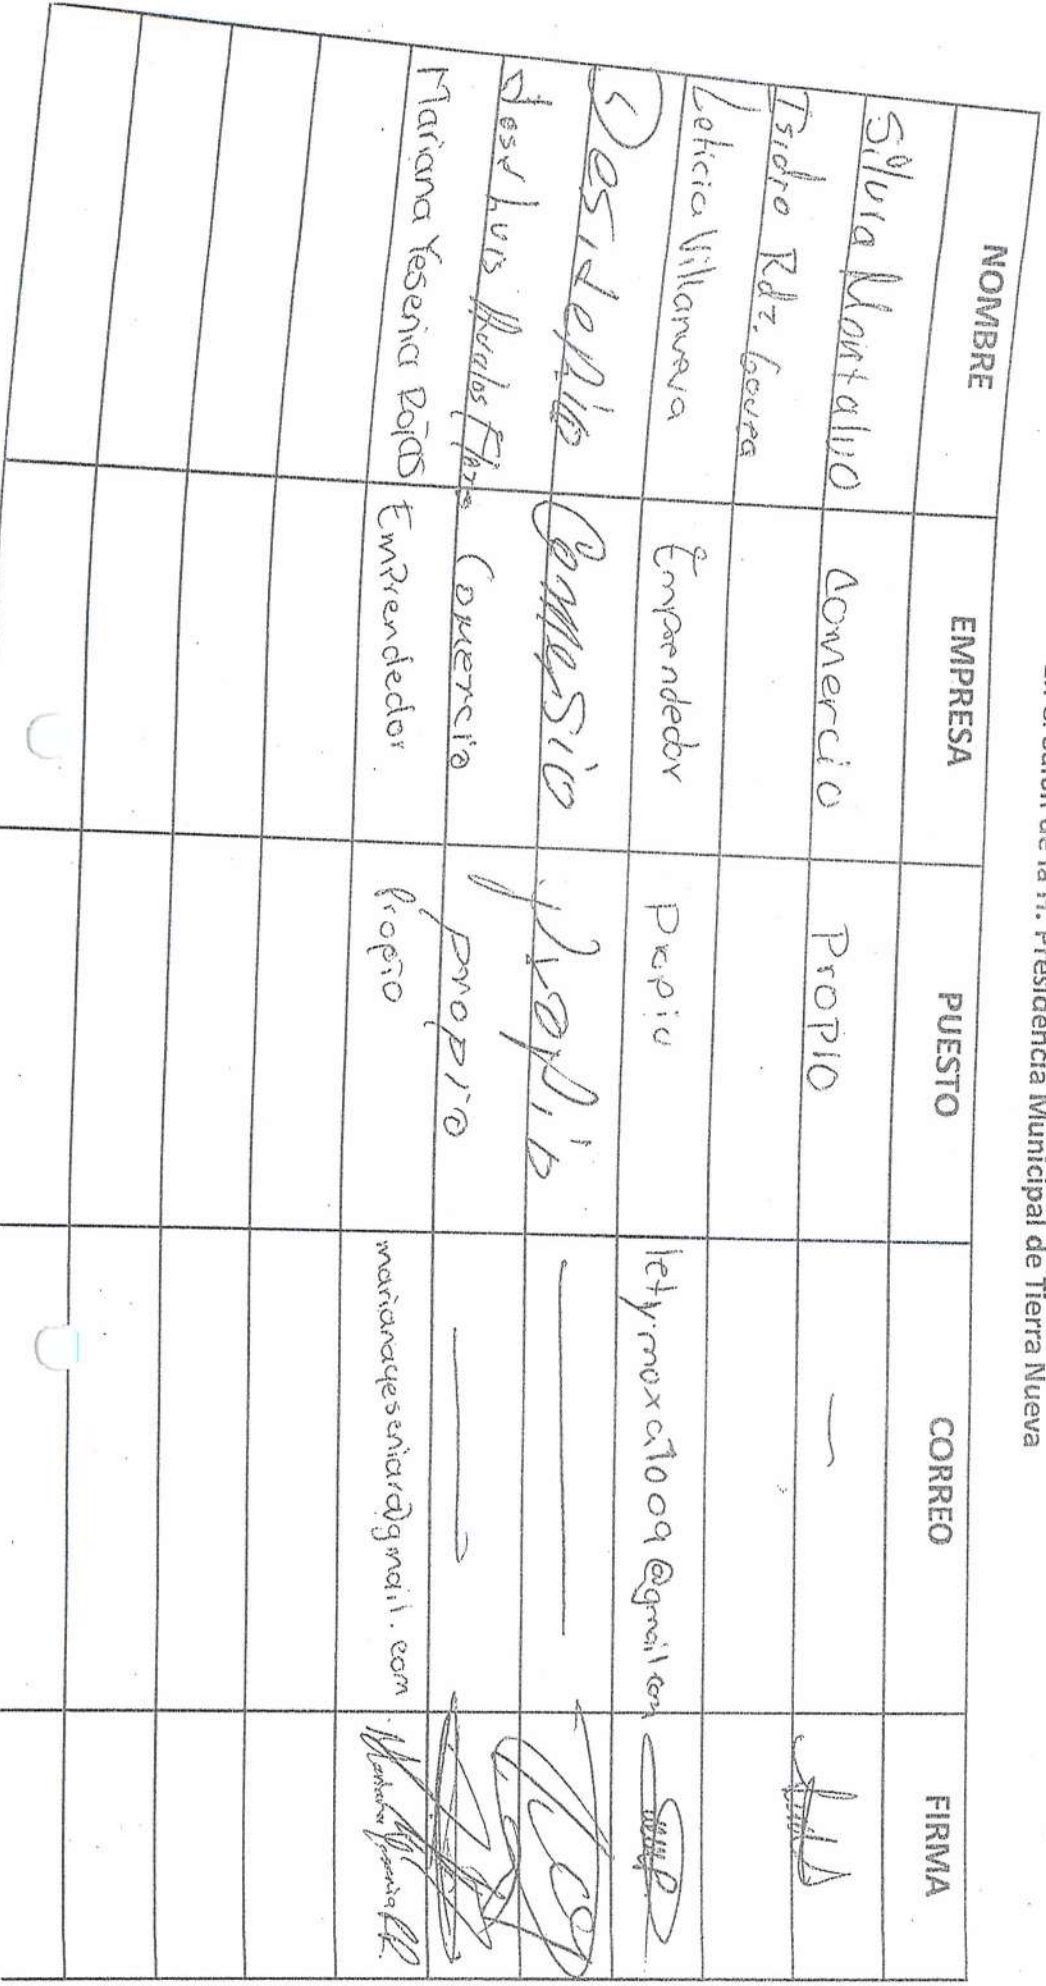 de la H. Presidencia Municipal de Tierra Nueva
NOMBRE EMPRESA PUESTO CORREO FIRMA
Silvia Montalvo Comercio Propio —
Isidro Rdz. Govea
Leticia Villanueva Emprendedor Propio @gmail.com
Desiderio Comersio Propio —
Jose Luis Avalos Comercio propio —
Mariana Yesenia Rojas Emprendedor Propio marianayeseniara@gmail.com Mariana Yesenia RR.